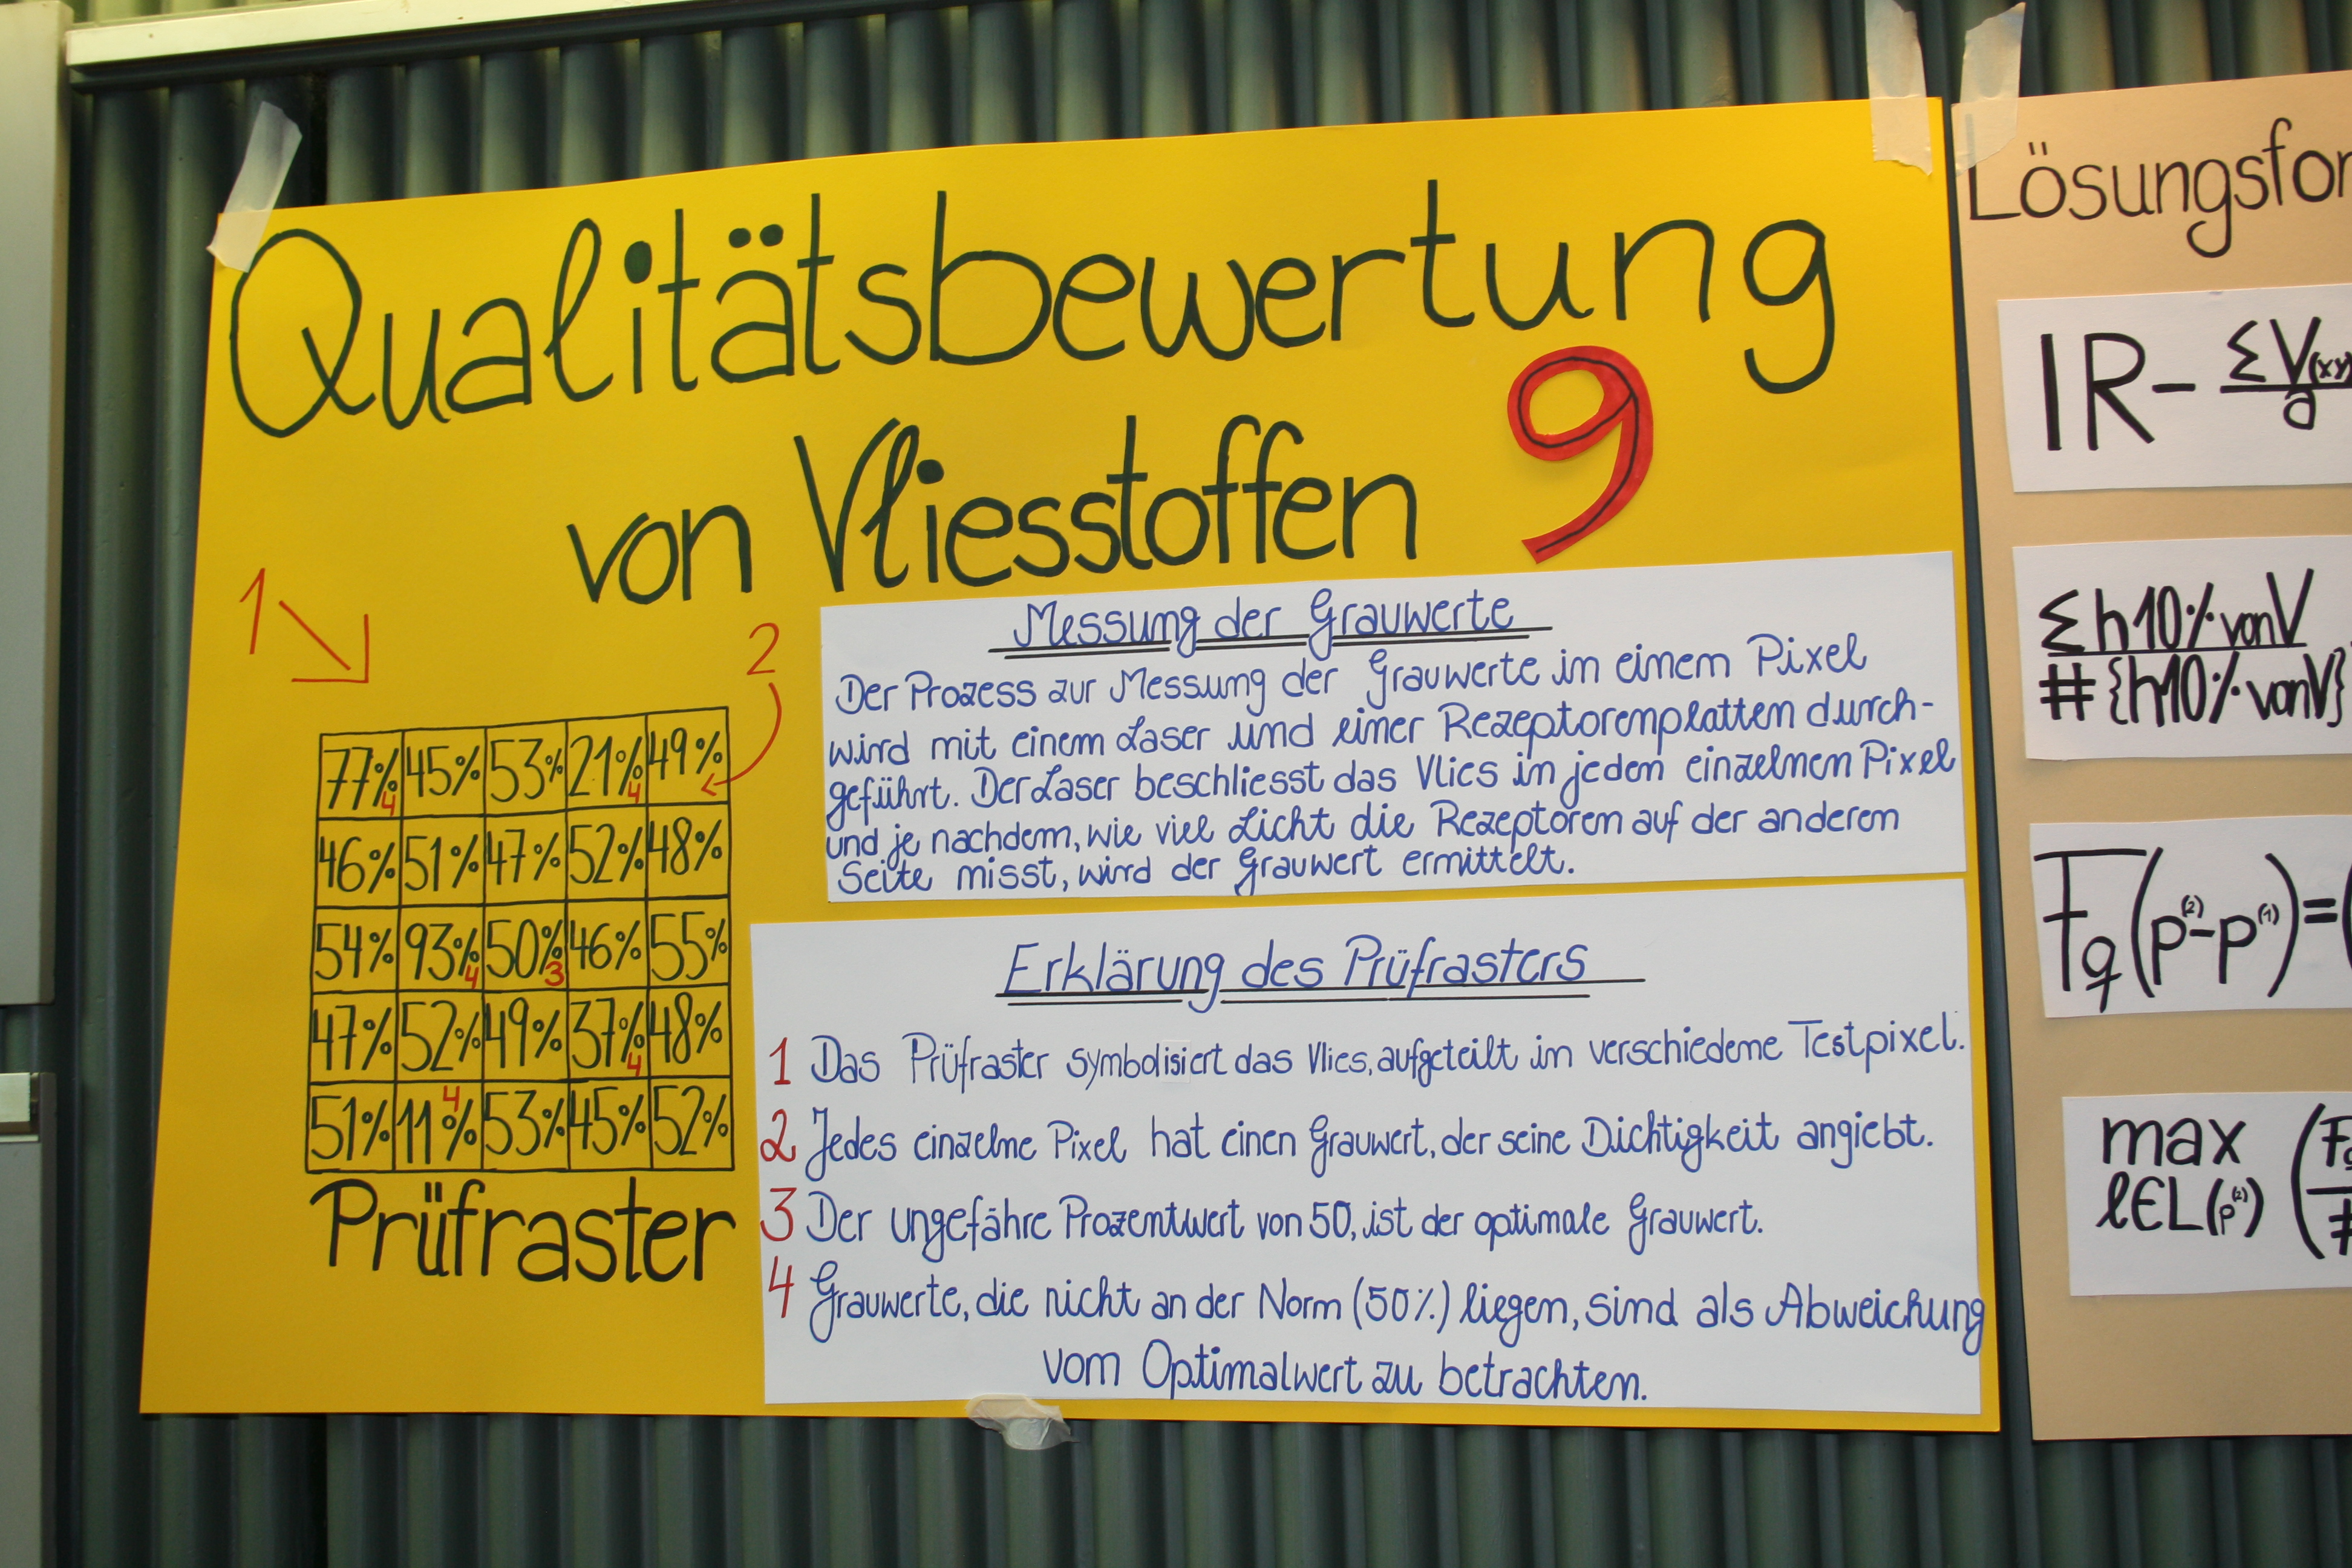 Qualitätsbewertung
von Vliesstoffen 9
1
2
77% 4 45% 53% 21% 4 49%
46% 51% 47% 52% 48%
54% 93% 4 50% 3 46% 55%
47% 52% 49% 37% 4 48%
51% 11% 4 53% 45% 52%
Prüfraster
Messung der Grauwerte
Der Prozess zur Messung der Grauwerte in einem Pixel
wird mit einem Laser und einer Rezeptorenplatten durch-
geführt. Der Laser beschliesst das Vlies in jeden einzelnen Pixel
und je nachdem, wie viel Licht die Rezeptoren auf der anderen
Seite misst, wird der Grauwert ermittelt.
Erklärung des Prüfrasters
1 Das Prüfraster symbolisiert das Vlies, aufgeteilt in verschiedene Testpixel.
2 Jedes einzelne Pixel hat einen Grauwert, der seine Dichtigkeit angiebt.
3 Der ungefähre Prozentwert von 50, ist der optimale Grauwert.
4 Grauwerte, die nicht an der Norm (50%) liegen, sind als Abweichung
vom Optimalwert zu betrachten.
Lösungsfor
IR- ΣV(xy)
a
Σh10% von V
#{h10% von V}
Fq(p⁽²⁾-p⁽¹⁾)=(
max
l∈L(p⁽²⁾) (